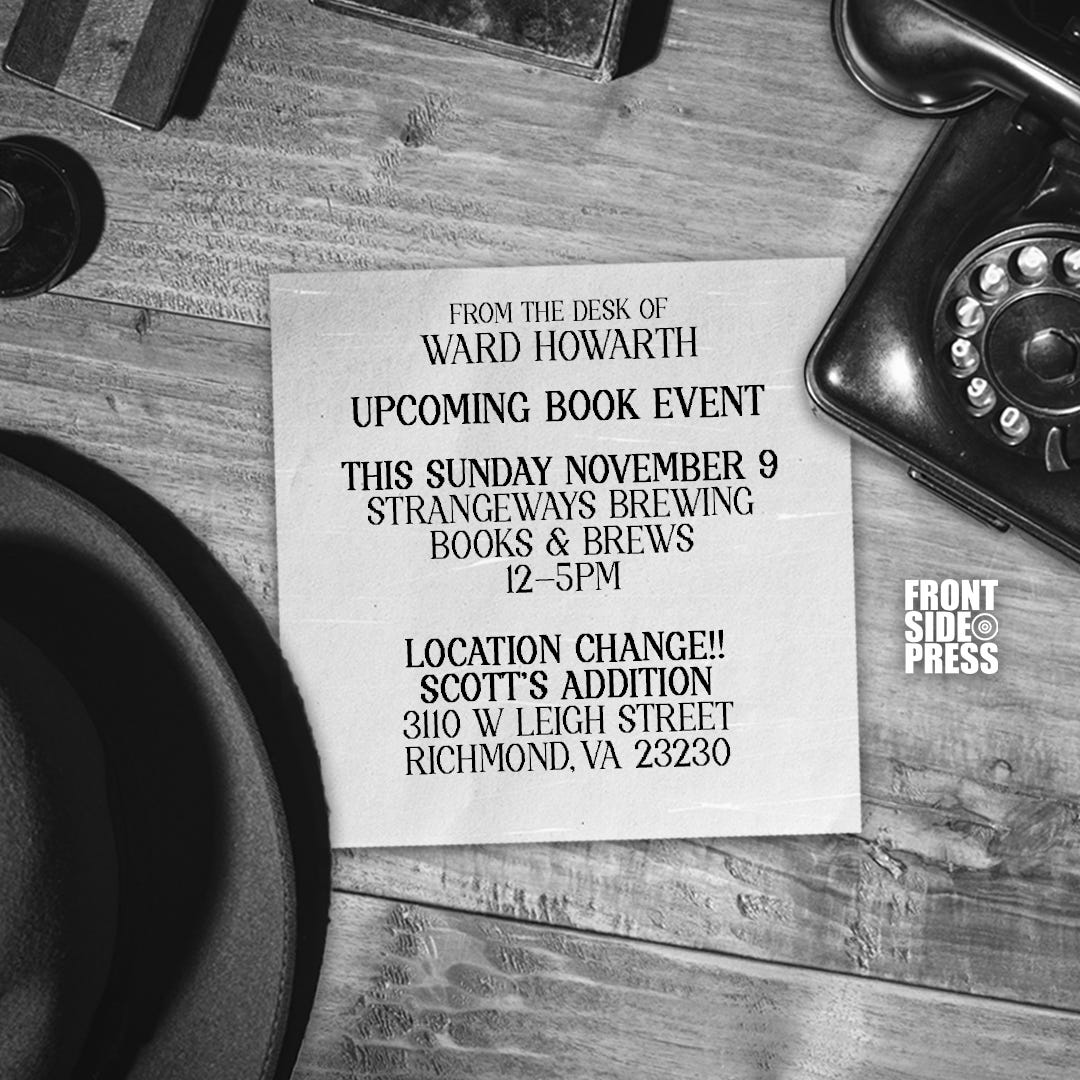 FROM THE DESK OF
WARD HOWARTH
UPCOMING BOOK EVENT
THIS SUNDAY NOVEMBER 9
STRANGEWAYS BREWING
BOOKS & BREWS
12–5PM
LOCATION CHANGE!!
SCOTT'S ADDITION
3110 W LEIGH STREET
RICHMOND, VA 23230
FRONT
SIDE
PRESS
9
0